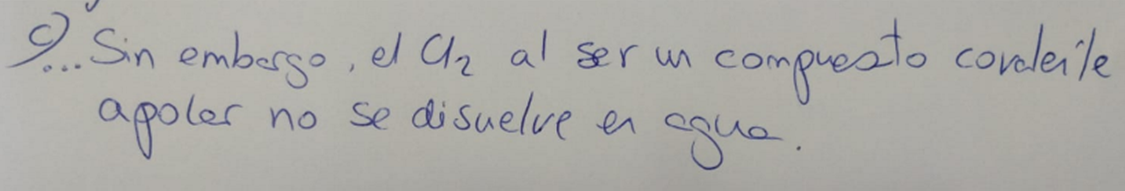 c)... Sin embargo, el Cl₂ al ser un compuesto covalente
apolar no se disuelve en agua.